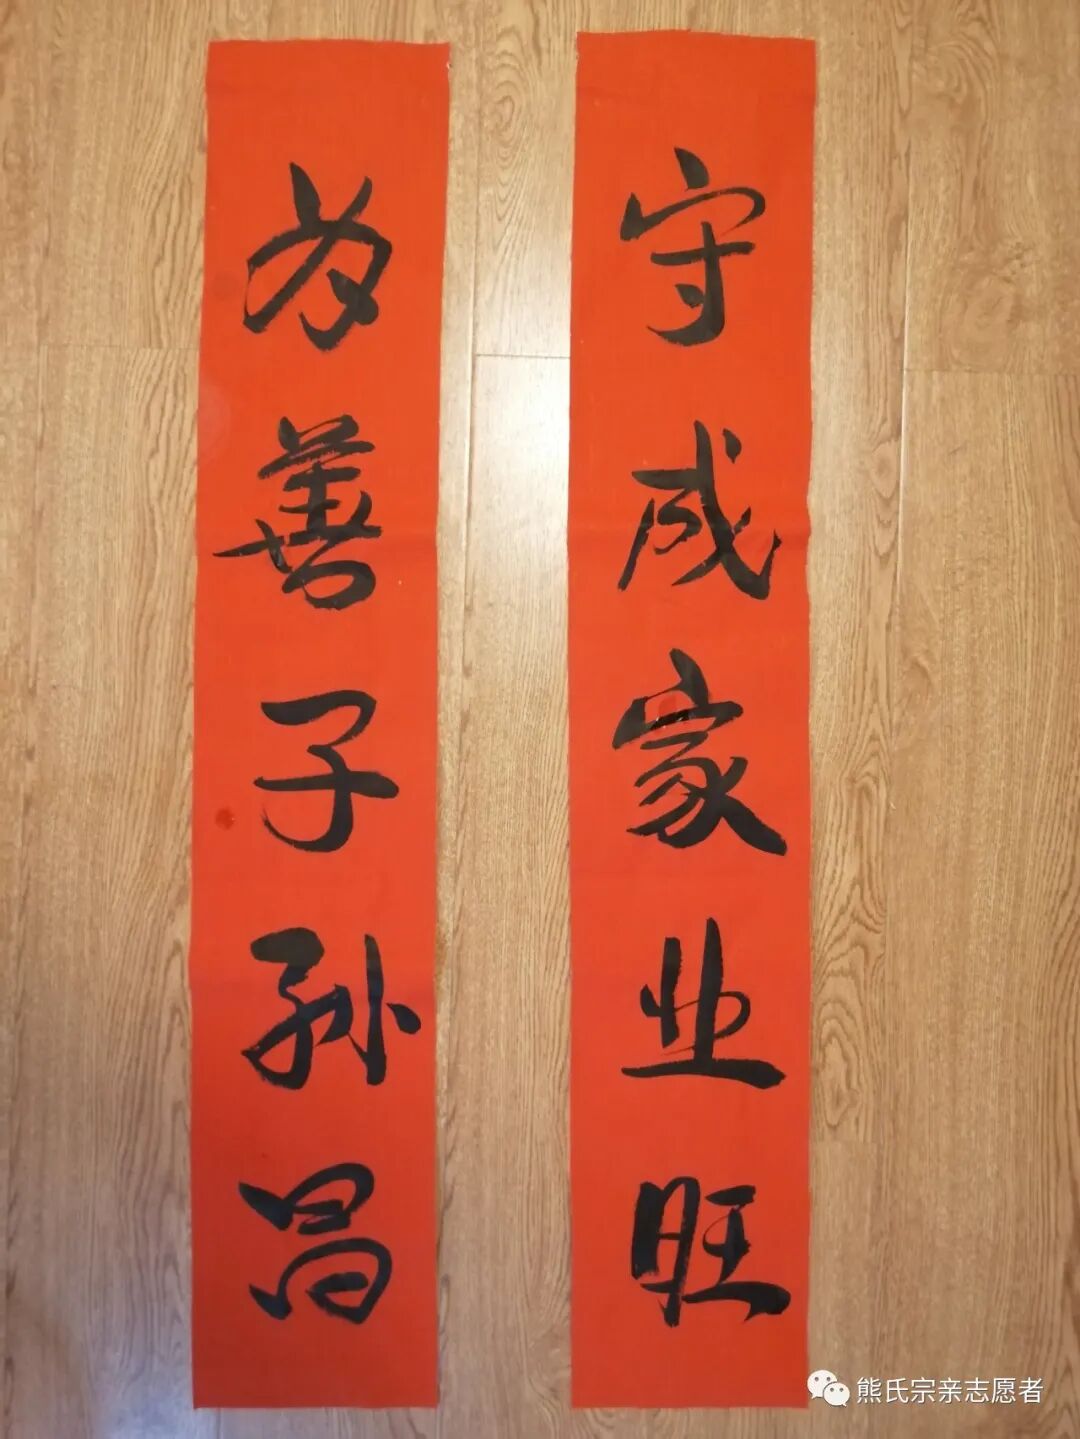 守成家业旺
为善子孙昌
熊氏宗亲志愿者